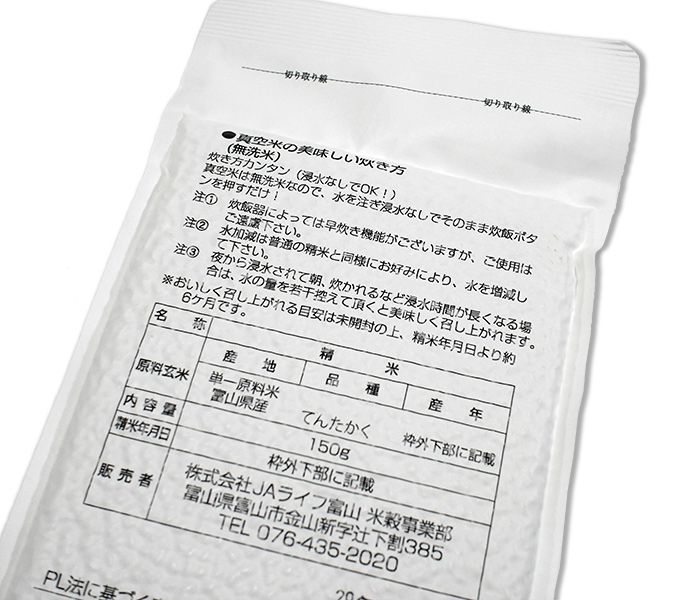 切り取り線
切り取り線
●真空米の美味しい炊き方
(無洗米)
炊き方カンタン(浸水なしでOK!)
真空米は無洗米なので、水を注ぎ浸水なしでそのまま炊飯ボタ
ンを押すだけ!
注① 炊飯器によっては早炊き機能がございますが、ご使用は
ご遠慮下さい。
注② 水加減は普通の精米と同様にお好みにより、水を増減し
て下さい。
注③ 夜から浸水されて朝、炊かれるなど浸水時間が長くなる場
合は、水の量を若干控えて頂くと美味しく召し上がれます。
※おいしく召し上がれる目安は未開封の上、精米年月日より約
6ケ月です。
名 称 精 米
原料玄米 産 地 品 種 産 年
単一原料米
富山県産 てんたかく 枠外下部に記載
内容量 150g
精米年月日 枠外下部に記載
販売者 株式会社JAライフ富山 米穀事業部
富山県富山市金山新字辻下割385
TEL 076-435-2020
PL法に基づく